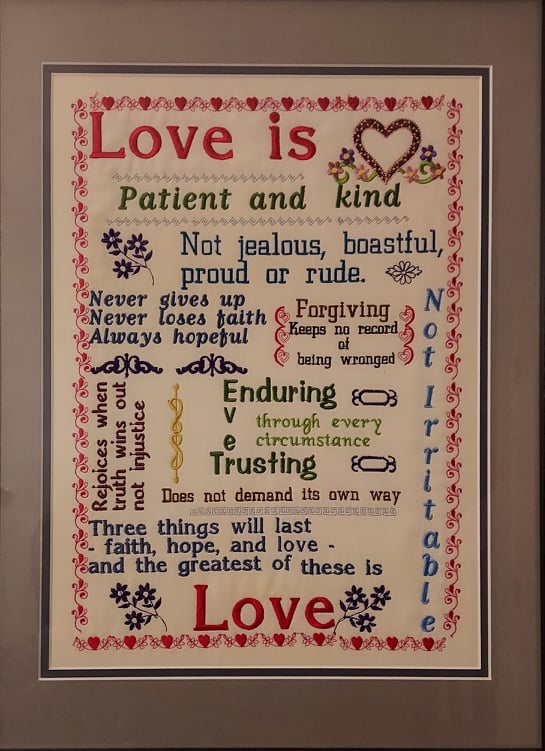 Love is
Patient and kind
Not jealous, boastful,
proud or rude.
Never gives up
Never loses faith
Always hopeful
Forgiving
Keeps no record
of
being wronged
Not Irritable
Rejoices when
truth wins out
not injustice
Enduring
v
e
through every
circumstance
Trusting
Does not demand its own way
Three things will last
- faith, hope, and love -
and the greatest of these is
Love